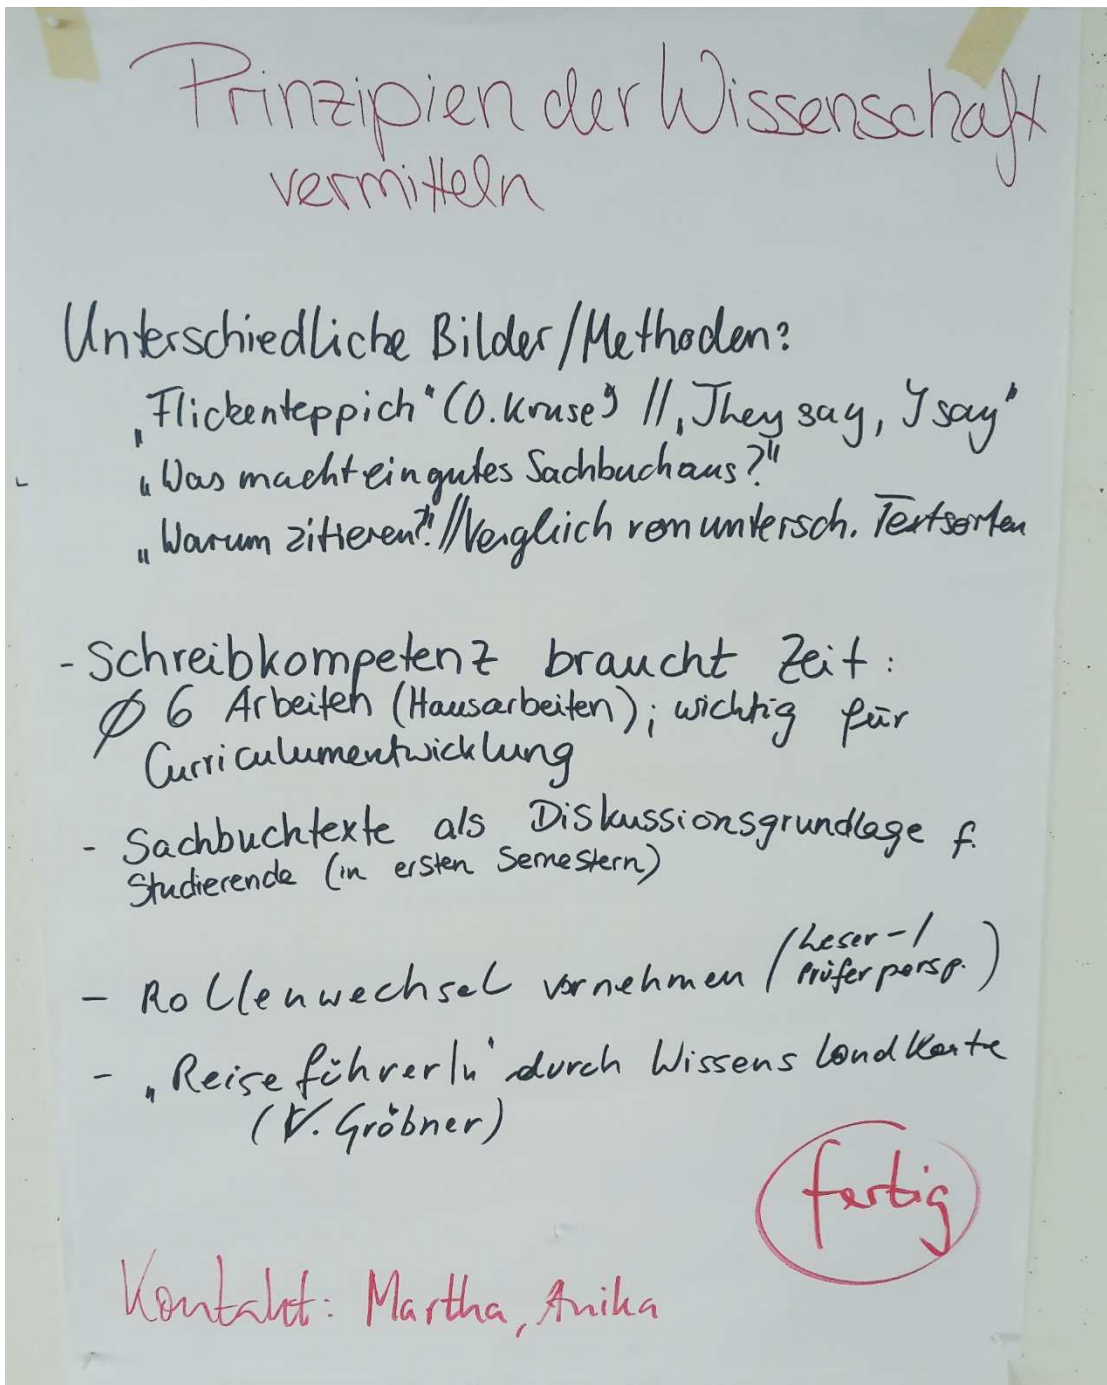 Prinzipien der Wissenschaft
vermitteln
Unterschiedliche Bilder/Methoden?
„Flickenteppich" (O. Kruse) // „They say, I say"
„Was macht ein gutes Sachbuch aus?"
„Warum zitieren?" // Vergleich von untersch. Textsorten
- Schreibkompetenz braucht Zeit:
Ø 6 Arbeiten (Hausarbeiten); wichtig für
Curriculumentwicklung
- Sachbuchtexte als Diskussionsgrundlage f.
Studierende (in ersten Semestern)
- Rollenwechsel vornehmen (Leser-/
Prüferpersp.)
- „ReiseführerIn" durch Wissenslandkarte
(V. Gröbner)
fertig
Kontakt: Martha, Anika